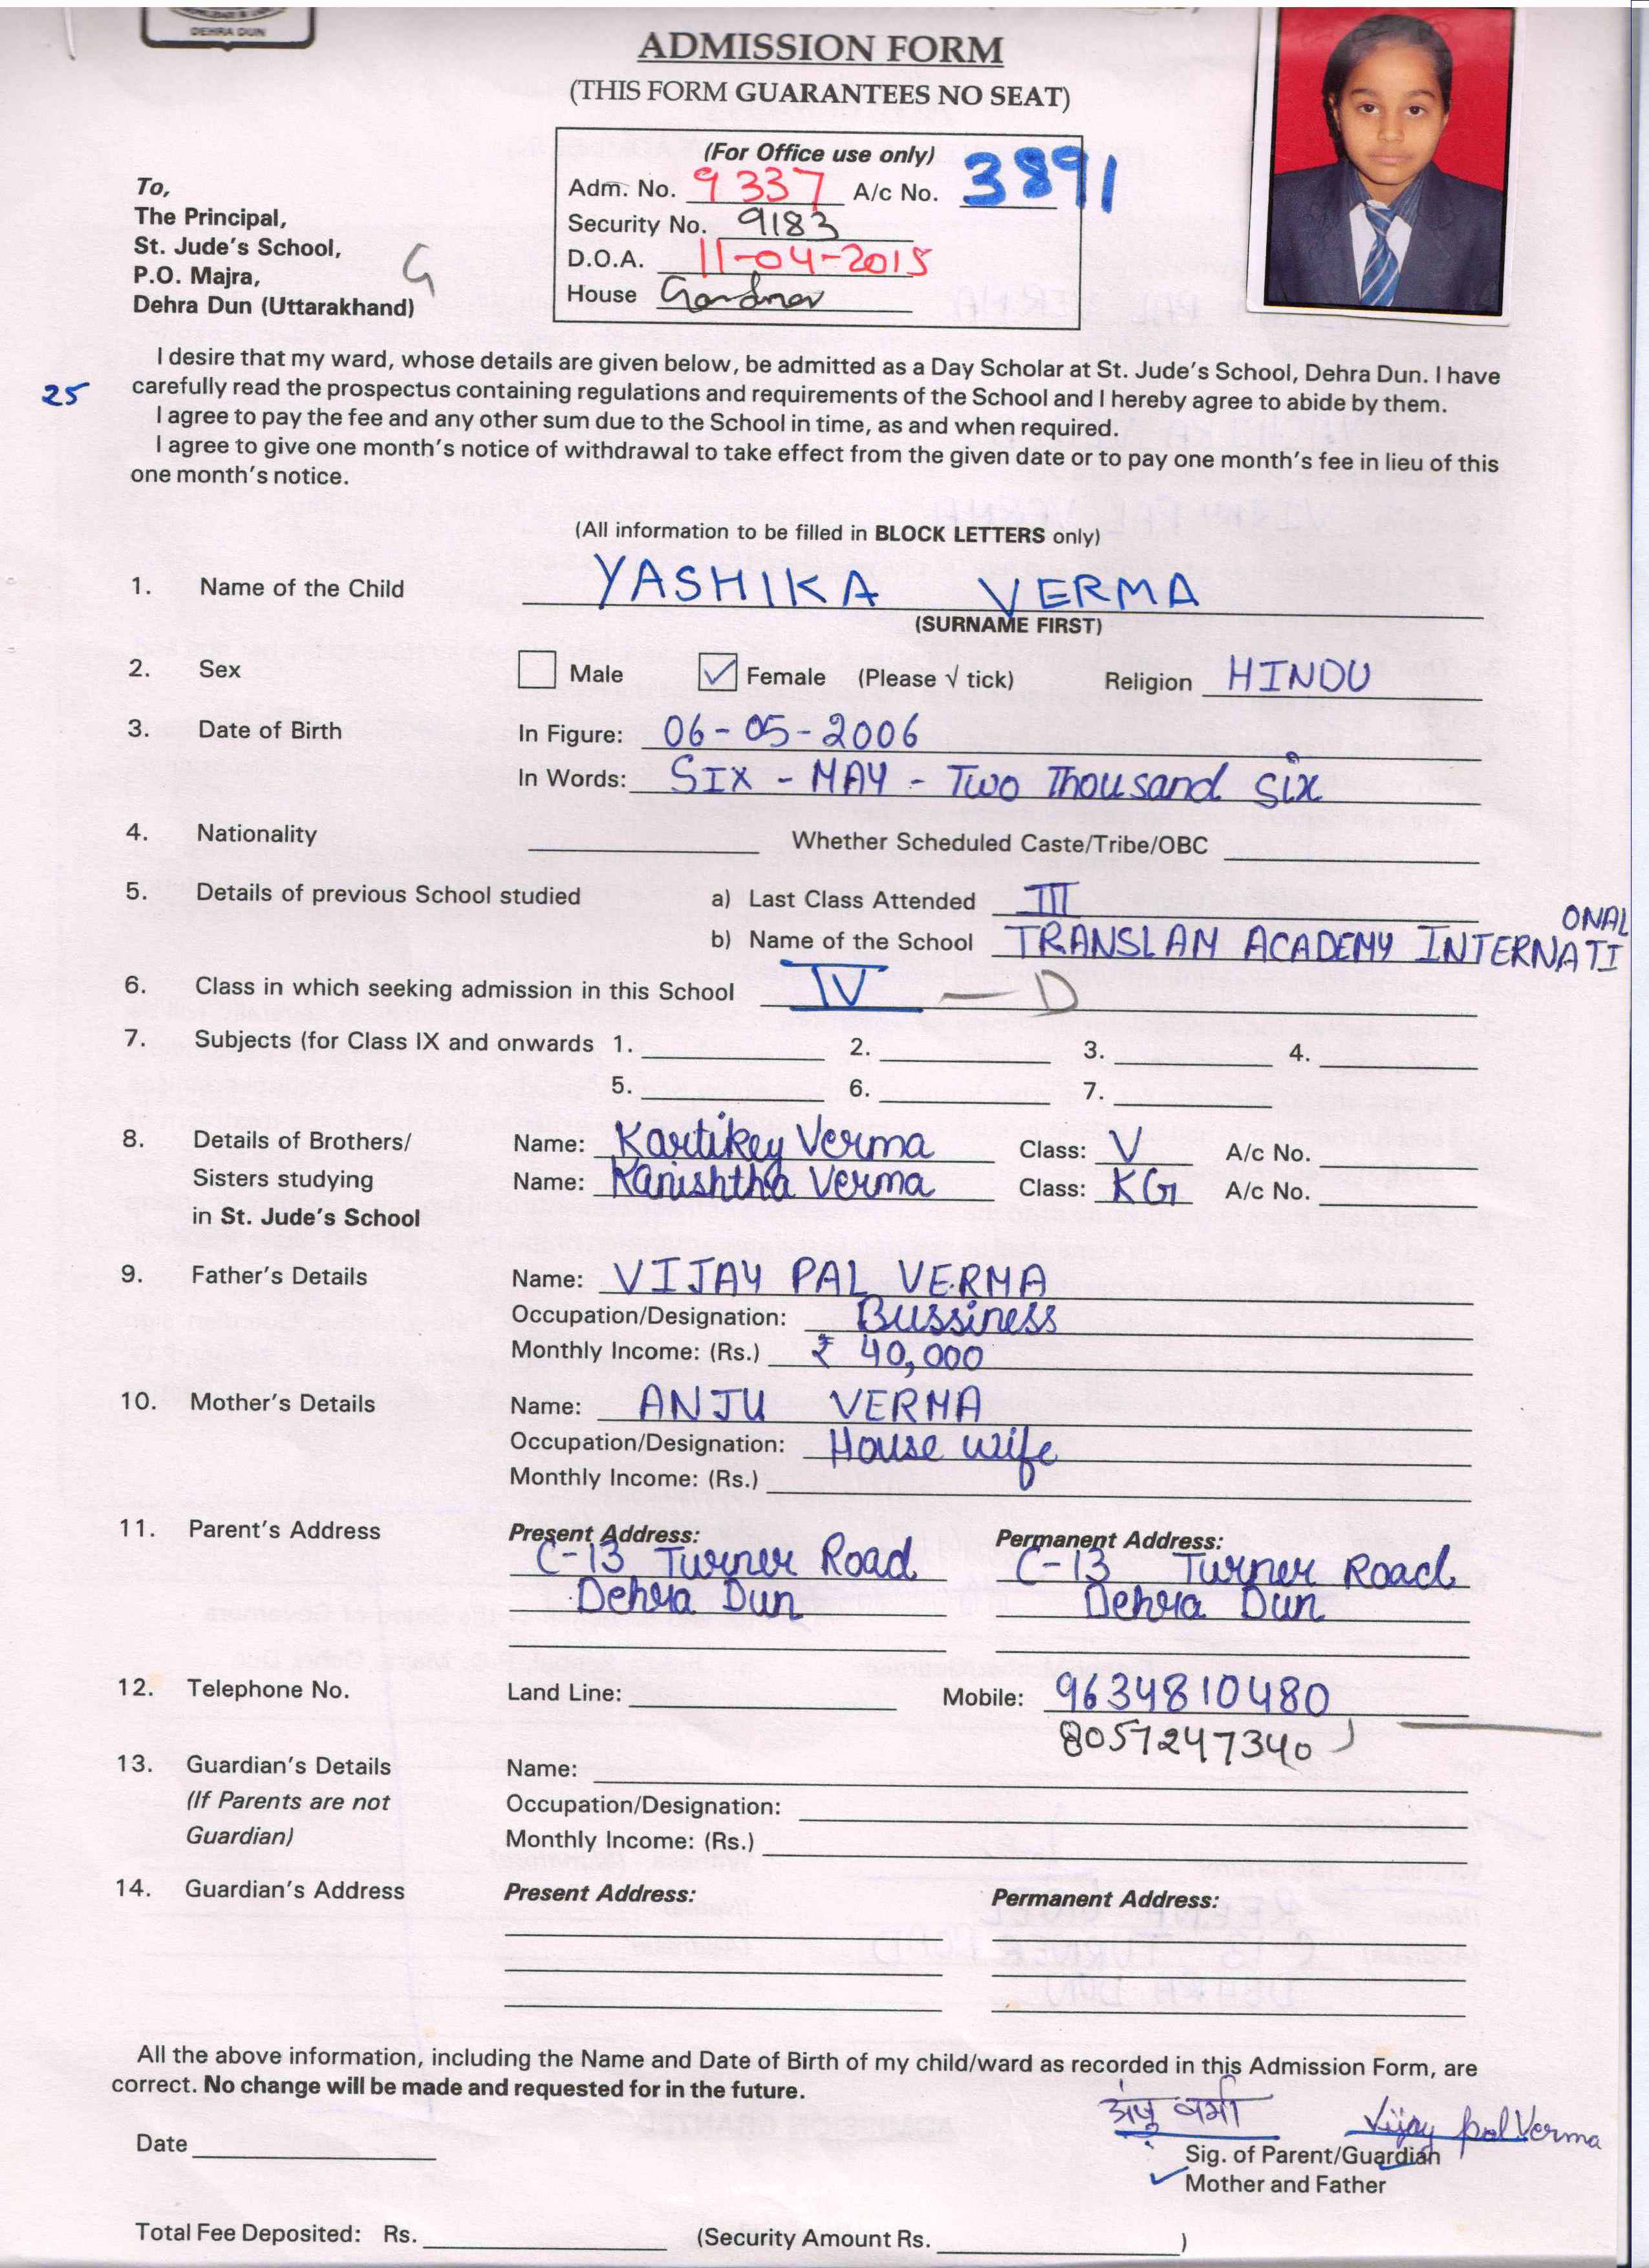 DEHRA DUN
ADMISSION FORM
(THIS FORM GUARANTEES NO SEAT)
(For Office use only)
Adm. No. 9337 A/c No. 3891
Security No. 9183
D.O.A. 11-04-2015
House Gardner
To,
The Principal,
St. Jude's School,
P.O. Majra,
Dehra Dun (Uttarakhand)
G
I desire that my ward, whose details are given below, be admitted as a Day Scholar at St. Jude's School, Dehra Dun. I have
25 carefully read the prospectus containing regulations and requirements of the School and I hereby agree to abide by them.
I agree to pay the fee and any other sum due to the School in time, as and when required.
I agree to give one month's notice of withdrawal to take effect from the given date or to pay one month's fee in lieu of this
one month's notice.
(All information to be filled in BLOCK LETTERS only)
1. Name of the Child YASHIKA VERMA
(SURNAME FIRST)
2. Sex Male ✓ Female (Please √ tick) Religion HINDU
3. Date of Birth In Figure: 06-05-2006
In Words: SIX - MAY - Two Thousand Six
4. Nationality Whether Scheduled Caste/Tribe/OBC
5. Details of previous School studied a) Last Class Attended III
b) Name of the School TRANSLAM ACADEMY INTERNATIONAL
6. Class in which seeking admission in this School IV - D
7. Subjects (for Class IX and onwards 1. 2. 3. 4.
5. 6. 7.
8. Details of Brothers/ Name: Kartikey Verma Class: V A/c No.
Sisters studying Name: Kanishtha Verma Class: KG A/c No.
in St. Jude's School
9. Father's Details Name: VIJAY PAL VERMA
Occupation/Designation: Bussiness
Monthly Income: (Rs.) ₹ 40,000
10. Mother's Details Name: ANJU VERMA
Occupation/Designation: House wife
Monthly Income: (Rs.)
11. Parent's Address Present Address: Permanent Address:
C-13 Turner Road C-13 Turner Road
Dehra Dun Dehra Dun
12. Telephone No. Land Line: Mobile: 9634810480
8057247340
13. Guardian's Details Name:
(If Parents are not Occupation/Designation:
Guardian) Monthly Income: (Rs.)
14. Guardian's Address Present Address: Permanent Address:
All the above information, including the Name and Date of Birth of my child/ward as recorded in this Admission Form, are
correct. No change will be made and requested for in the future.
अंजु वर्मा Vijay pal Verma
Date
Sig. of Parent/Guardian
✓ Mother and Father
Total Fee Deposited: Rs. (Security Amount Rs. )